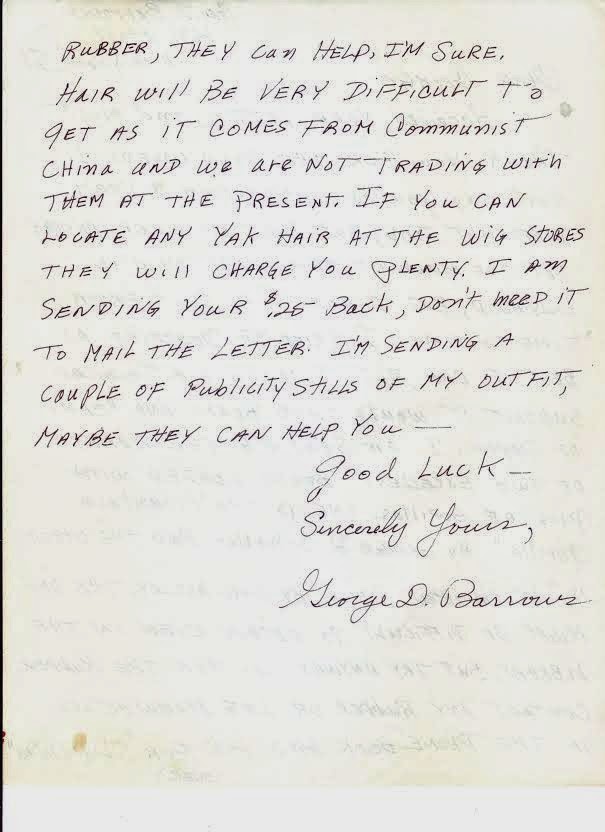 RUBBER, THEY Can HELP, I'M SURE.
HAIR will BE VERY DIFFICULT to
GET AS IT COMES FROM Communist
CHINA and we are NOT TRADING with
THEM AT THE PRESENT. IF YOU CAN
LOCATE ANY YAK HAIR AT THE WIG STORES
THEY will CHARGE YOU PLENTY. I AM
SENDING YOUR $.25 Back, DON'T NEED IT
TO MAIL THE LETTER. I'M SENDING A
COUPLE OF PUBLICITY STILLS OF MY OUTFIT,
MAYBE THEY CAN HELP YOU —
Good Luck —
Sincerely Yours,
George D. Barrows